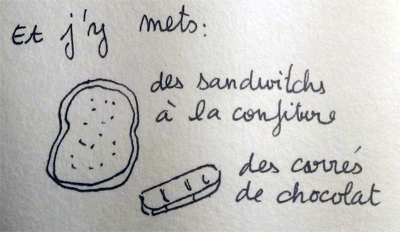 Et j'y mets:
des sandwitchs
à la confiture
des carrés
de chocolat